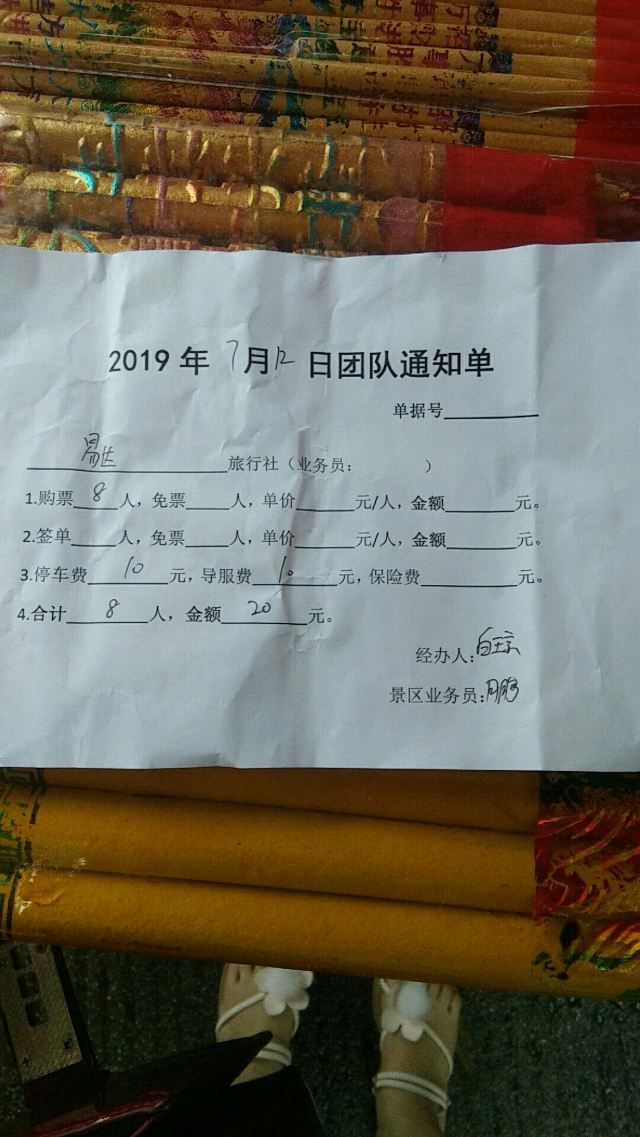 2019 年 7 月 12 日团队通知单
单据号
易达 旅行社（业务员： ）
1.购票 8 人，免票 人，单价 元/人，金额 元。
2.签单 人，免票 人，单价 元/人，金额 元。
3.停车费 10 元，导服费 10 元，保险费 元。
4.合计 8 人，金额 20 元。
经办人：
景区业务员：